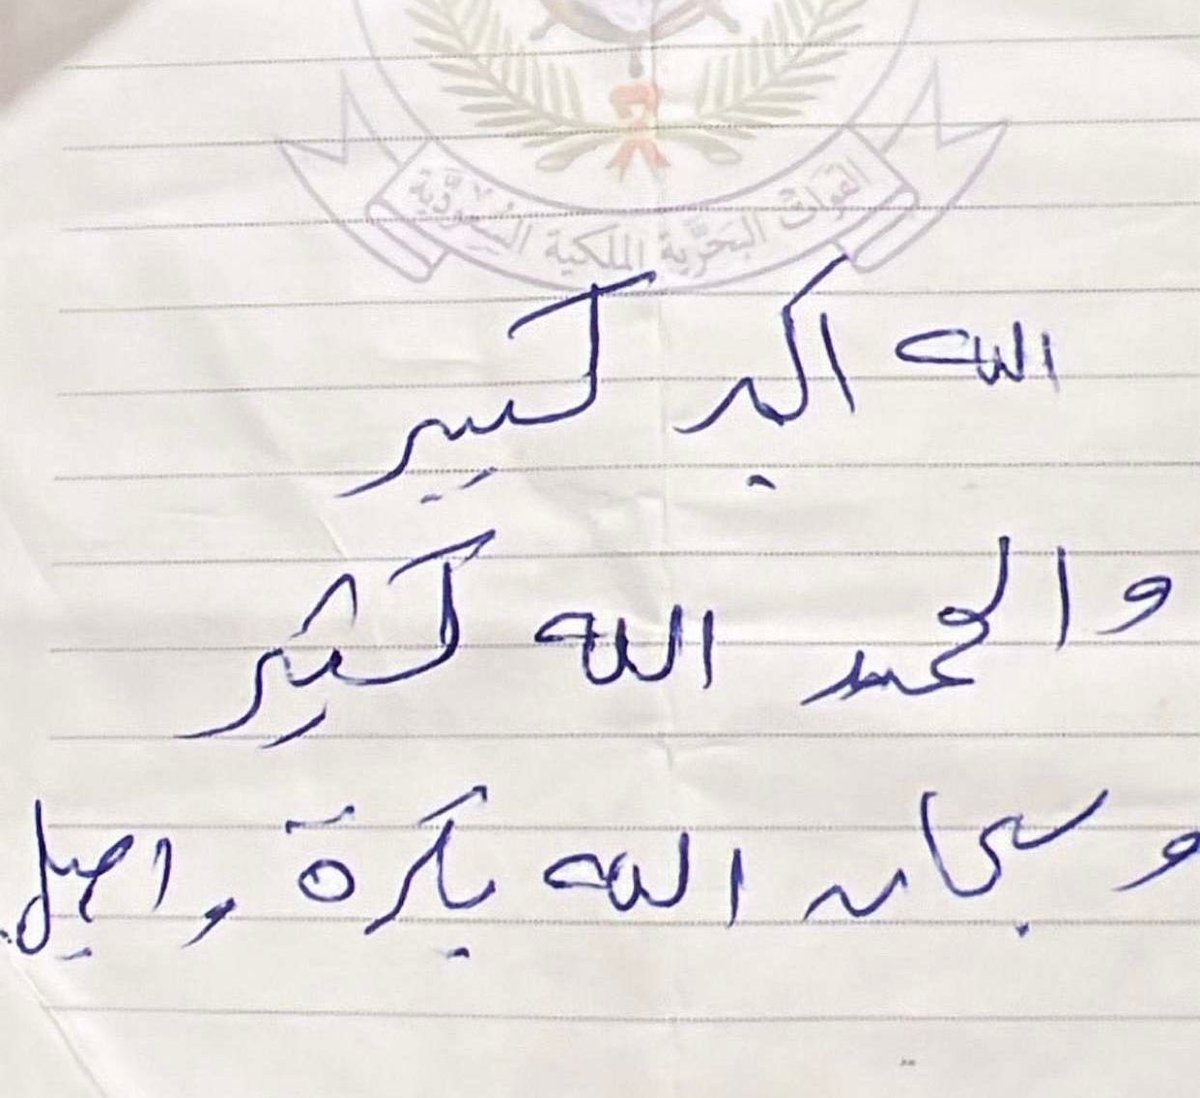 القوات البحرية الملكية السعودية
الله اكبر كبير
والحمد الله كثير
وسبحان الله بكرة واصيل